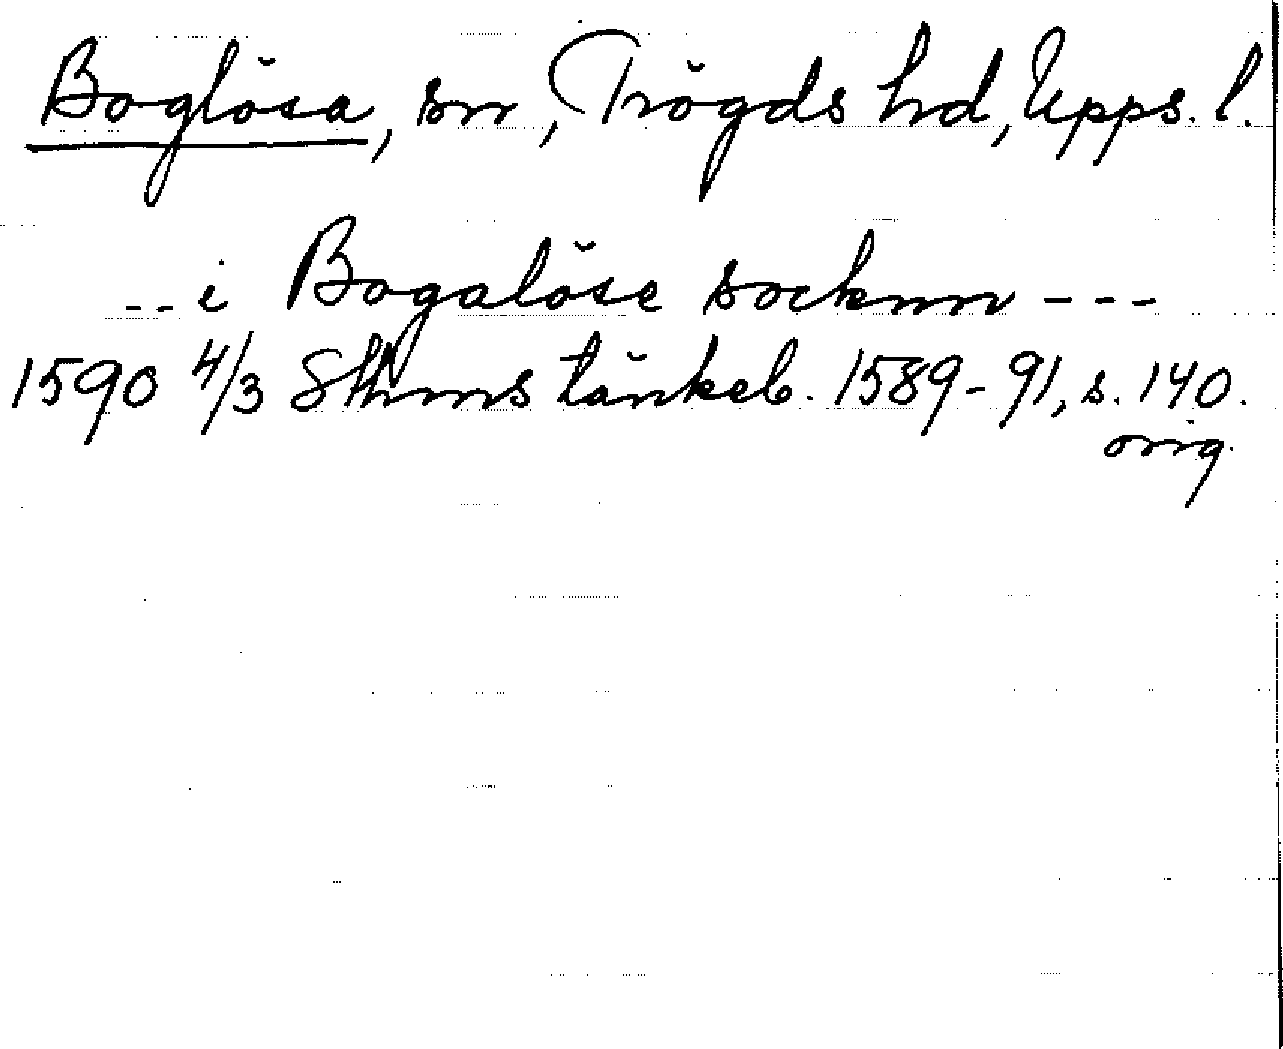 Boglösa, sn, Trögds hd, Upps. l.
-- i Bogalöse socknn ---
1590 4/3 Sthms tänkeb. 1589-91, s. 140.
orig.